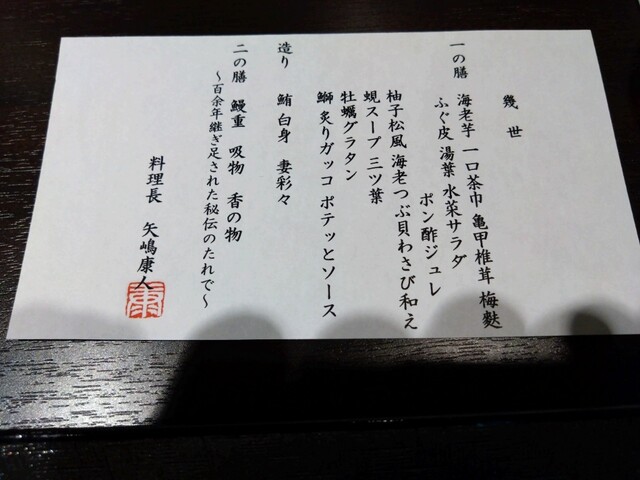 幾世
一の膳 海老芋 一口茶巾 亀甲椎茸 梅麩
ふぐ皮 湯葉 水菜サラダ
ポン酢ジュレ
柚子松風 海老つぶ貝わさび和え
蜆スープ 三ツ葉
牡蠣グラタン
鰤炙りガッコ ポテッとソース
造り 鮪 白身 妻彩々
二の膳 鰻重 吸物 香の物
～百余年継ぎ足された秘伝のたれで～
料理長 矢嶋康人
康